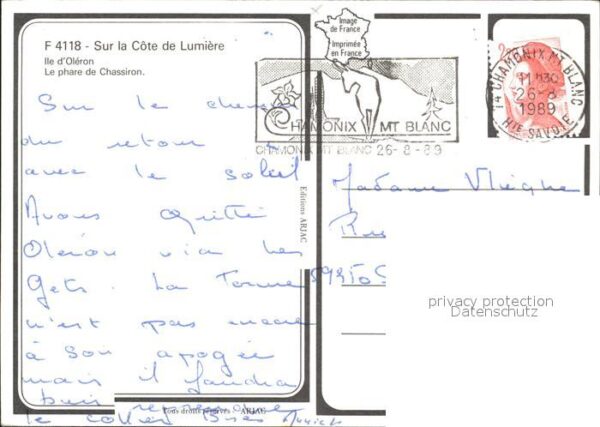 F 4118 - Sur la Côte de Lumière
Ile d'Oléron
Le phare de Chassiron.
Image
de France
Imprimée
en France
CHAMONIX MT BLANC
CHAMONIX MT BLANC 26-8-89
74 CHAMONIX MT BLANC
11H30
26-8
1989
HTE SAVOIE
Sur le chemin
du retour
avec le soleil
Avons quitté
Oléron via les
Gets. La forme
n'est pas encore
à son apogée
mais il faudra
bien reprendre
le collier Bises
Editions ARJAC
Madame
59210
privacy protection
Datenschutz
Tous droits réservés ARJAC